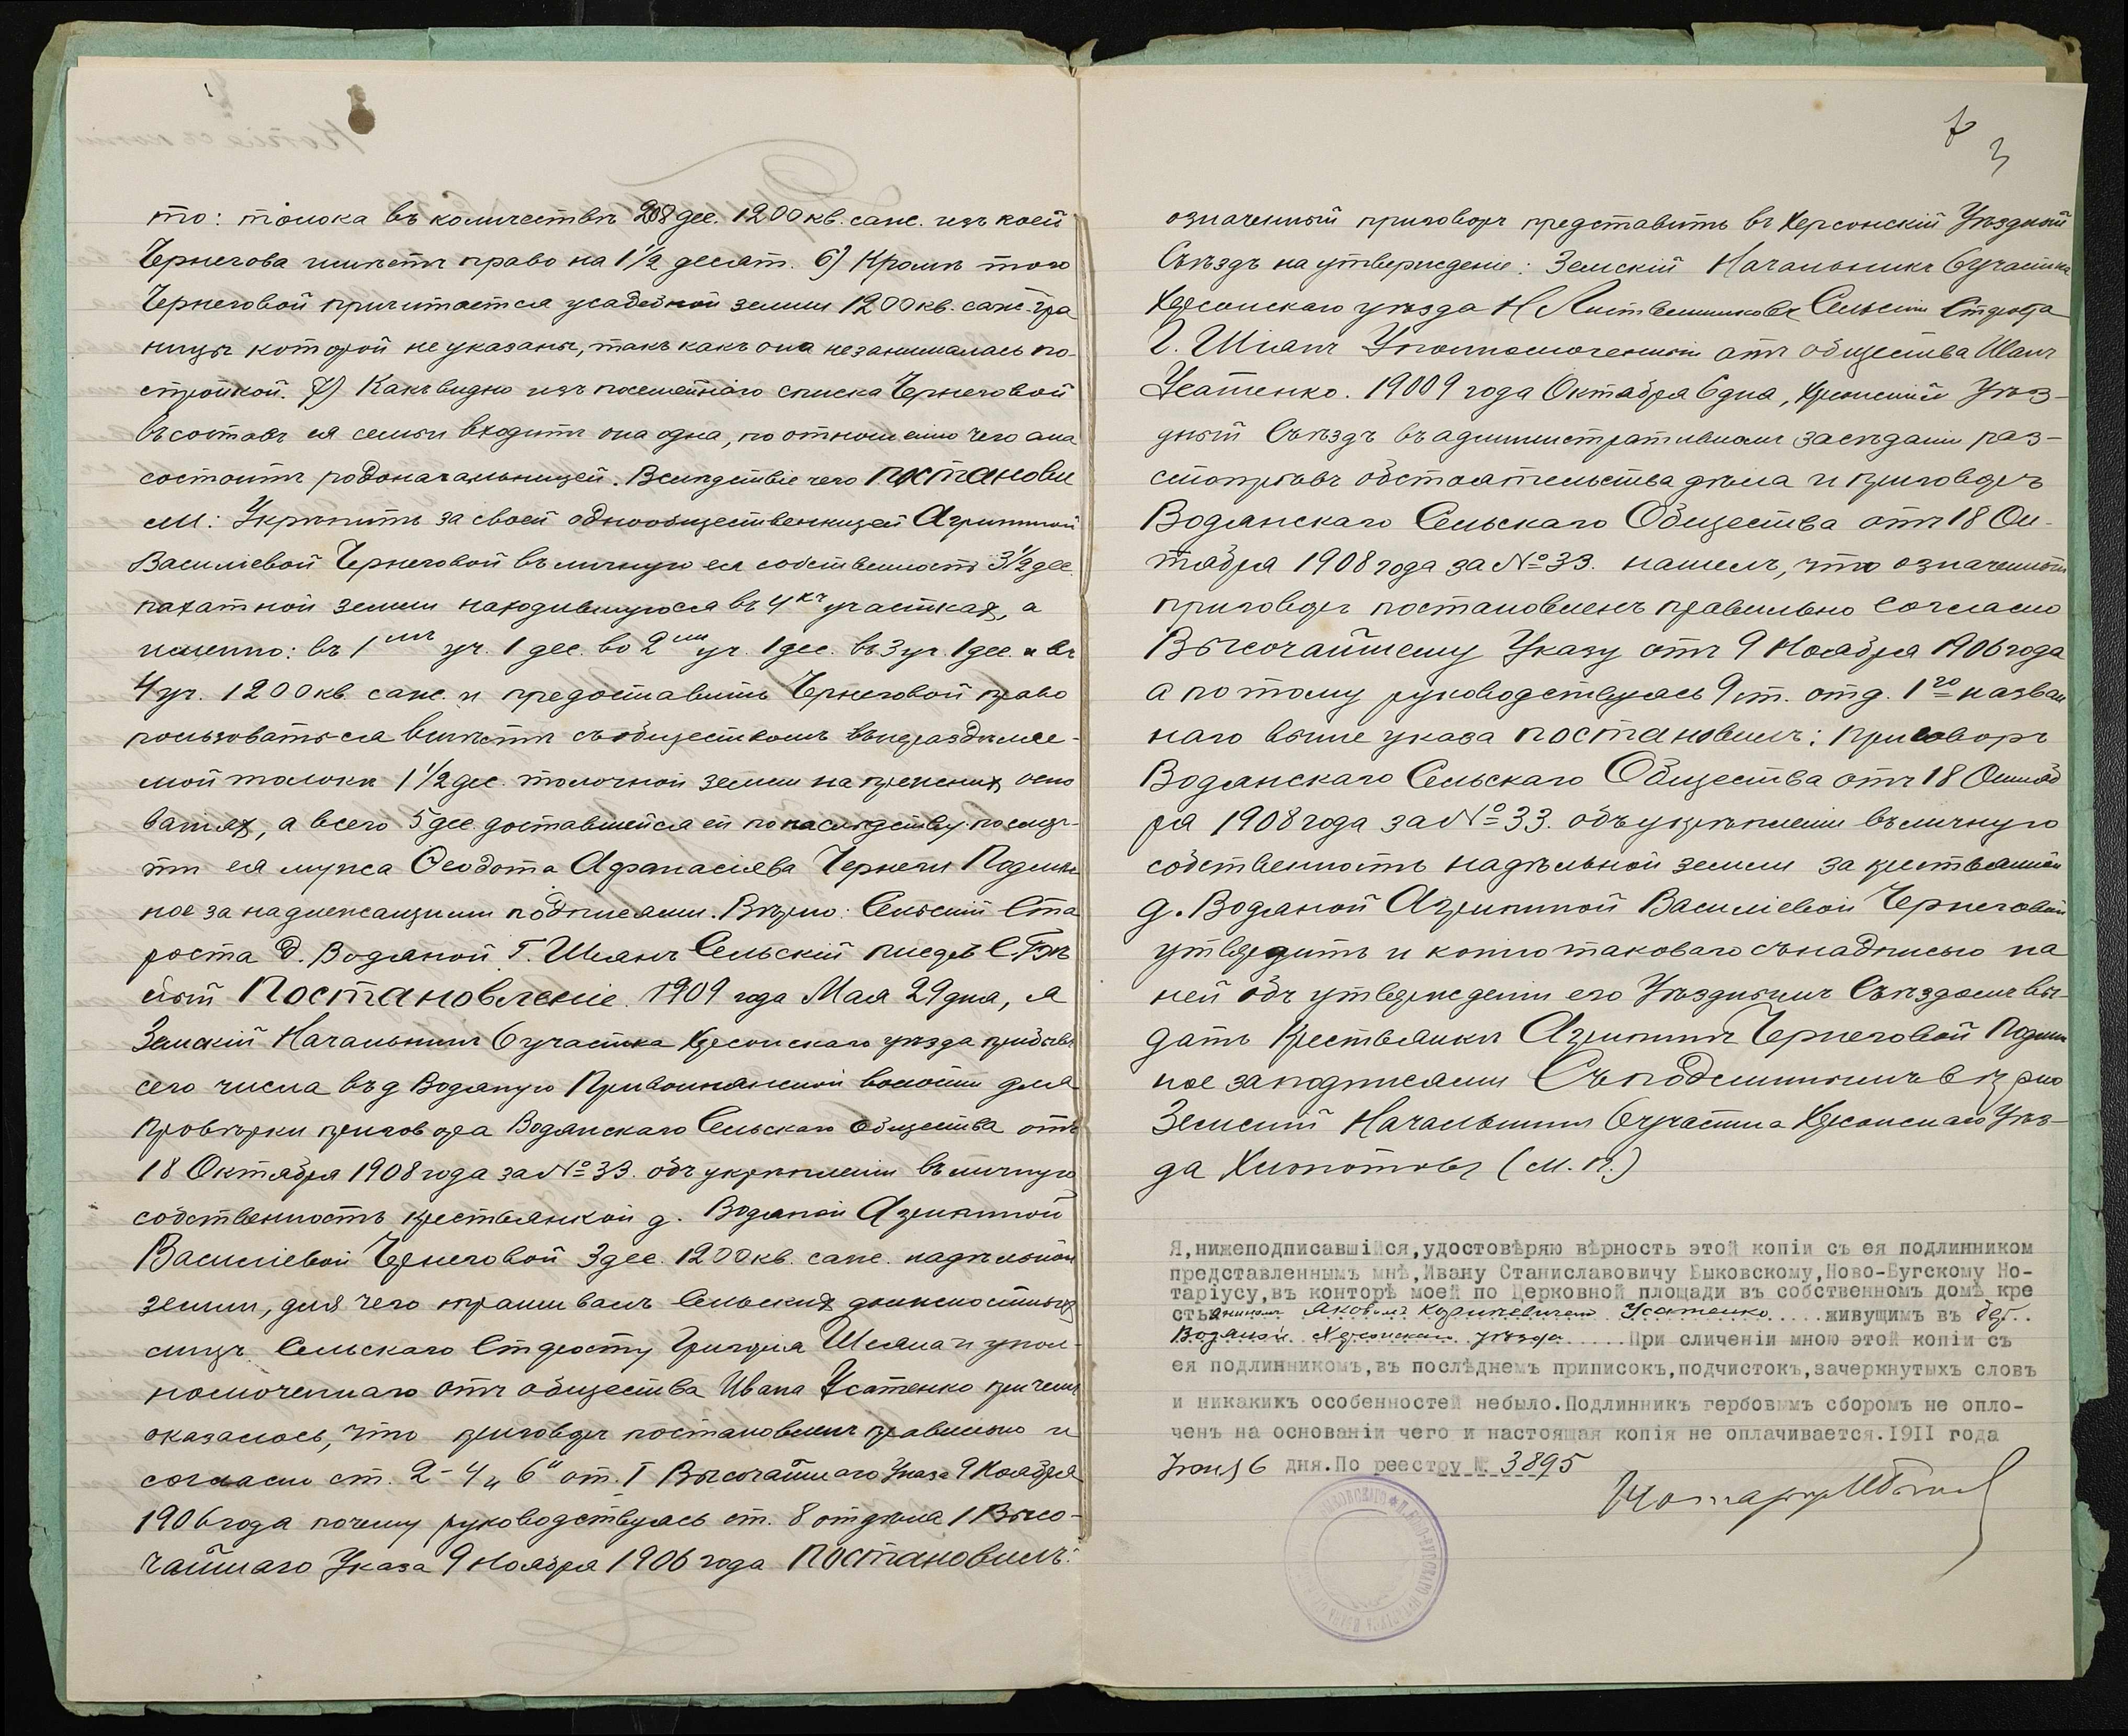 то: толока въ количествѣ 208 дес. 1200 кв. саж. изъ коей
Чернегова имѣетъ право на 1 1/2 десят. 6) Кромѣ того
Черневой причитается усадебной земли 1200 кв. саж. гра
ницы которой не указаны, такъ какъ она не занималась по-
стройкой. 7) Какъ видно изъ посемейнаго списка Чернеговой
въ составъ ея семьи входитъ она одна, по отношенiю чего она
состоитъ родоначальницей. Вслѣдствiе чего постанови
ли: Укрѣпить за своей однообщественницей Агрипиной
Василiевой Чернеговой въ личную ея собственность 3 1/2 дес.
пахатной земли находившуюся въ 4хъ участкахъ, а
именно: въ 1мъ уч. 1 дес. во 2мъ уч. 1 дес. въ 3 уч. 1 дес. и въ
4 уч. 1200 кв. саж. и предоставить Чернеговой право
пользоваться вмѣстѣ съ обществомъ въ нераздѣляе-
мой толокѣ 1 1/2 дес. толочной земли на прежнихъ осно
ванiяхъ, а всего 5 дес. доставшейся ей по наслѣдству по смер-
ти ея мужа Ѳеодота Афанасiева Чернеги Подлин
ное за надлежащими подписями. Вѣрно: Сельскiй Ста
роста д. Водяной Г. Шлянъ Сельскiй писарь
Постановленiе. 1909 года Мая 29 дня, я
Земскiй Начальникъ 6 участка Херсонскаго уѣзда прибывъ
сего числа въ д Водяную Привольнянской волости для
провѣрки приговора Водянскаго Сельскаго Общества отъ
18 Октября 1908 года за № 33. объ укрѣпленiи въ личную
собственность крестьянкой д. Водяной Агрипиной
Василiевой Чернеговой 3 дес. 1200 кв. саж. надѣльной
земли, для чего опрашивалъ Сельскихъ должностныхъ
лицъ Сельскаго Старосту Григорiя Шляна и упол-
номоченнаго отъ общества Ивана Усатенко при чемъ
оказалось, что приговоръ постановленъ правильно и
согласно ст. 2-4 „ 6" от. I Высочайшаго Указа 9 Ноября
1906 года почему руководствуясь ст. 8 отдѣла 1 Высо-
чайшаго Указа 9 Ноября 1906 года постановилъ:
7
3
означенный приговоръ представить въ Херсонскiй Уѣздный
Съѣздъ на утвержденiе: Земскiй Начальникъ 6 участка
Херсонскаго уѣзда Н Листвениковъ Сельскiй Староста
Г. Шлянъ Уполномоченный отъ общества Иванъ
Усатенко. 19009 года Октября 6 дня, Херсонскiй Уѣз-
дный Съѣздъ въ административномъ засѣданiи раз-
смотрѣвъ обстоятельства дѣла и приговоръ
Водянскаго Сельскаго Общества отъ 18 Ок-
тября 1908 года за № 33. нашелъ, что означенный
приговоръ постановленъ правильно согласно
Высочайшему Указу отъ 9 Ноября 1906 года
а по тому руководствуясь 9 ст. отд. 1го назван
наго выше указа постановилъ: приговоръ
Водянскаго Сельскаго Общества отъ 18 Октяб
ря 1908 года за № 33. объ укрѣпленiи въ личную
собственность надѣльной земли за крестьянкой
д. Водяной Агрипиной Василiевой Чернеговой
утвердить и копiю таковаго съ надписью на
ней объ утвержденiи его Уѣзднымъ Съѣздомъ вы-
дать Крестьянкѣ Агрипинѣ Чернеговой Подлин
ное за подписями Съ подлиннымъ вѣрно
Земскiй Начальникъ 6 участка Херсонскаго Уѣз-
да Хлопотовъ (М. П.)
Я,нижеподписавшiйся,удостовѣряю вѣрность этой копiи съ ея подлинникомъ
представленнымъ мнѣ,Ивану Станиславовичу Быковскому,Ново-Бугскому Но-
тарiусу,въ конторѣ моей по Церковной площади въ собственномъ домѣ кре
стьяниномъ Яковомъ Усатенко.....живущимъ въ дер..
Водяной Херсонскаго уѣзда.....При сличенiи мною этой копiи съ
ея подлинникомъ,въ послѣднемъ приписокъ,подчистокъ,зачеркнутыхъ словъ
и никакихъ особенностей небыло.Подлинникъ гербовымъ сборомъ не опло-
ченъ на основанiи чего и настоящая копiя не оплачивается.1911 года
Iюня 6 дня.По реестру № 3895
Нотарiусъ